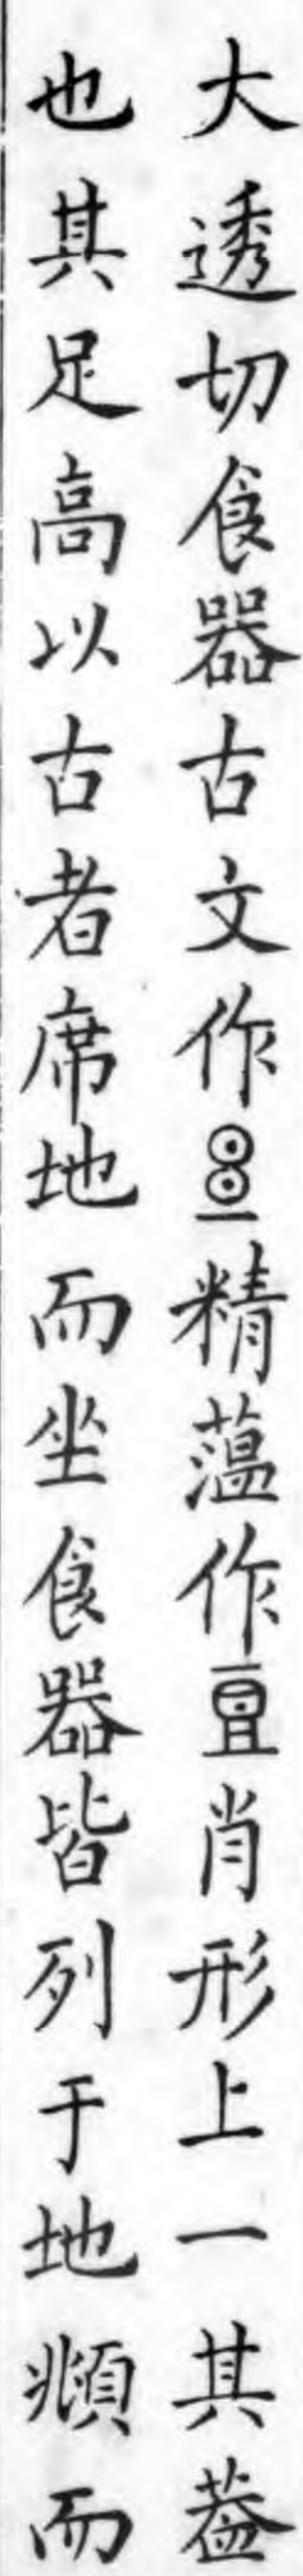 大透切食器古文作精薀作肖形上一其葢
也其足高以古者席地而坐食器皆列于地頫而